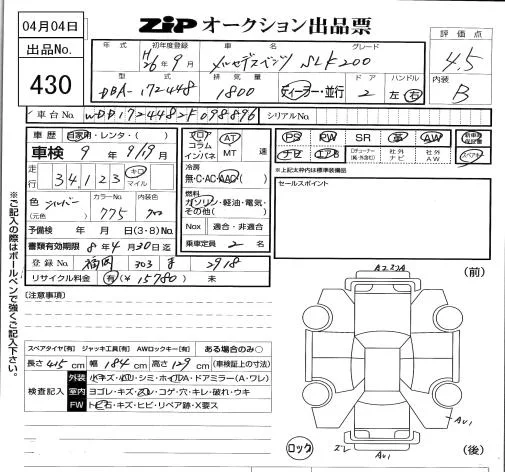 04月04日
ZIP オークション出品票
出品No.
430
評価点
4.5
内装
B
年式
初年度登録
車名
グレード
H26年9月
メルセデスベンツ SLK200
型式
排気量
ドア
ハンドル
DBA-172448
1800
ディーラー・並行
2
左 右
車台No.
WDD1724482F098896
シリアルNo.
車歴
自家用・レンタ・( )
車検 9年9月19日
走行
34,123
キロ
マイル
色
(元色)
シルバー
カラーNo.
775
内装色
予備検 年 月 日(3・8)No.
書類有効期限 8年4月30日迄
登録No. 福岡 303 2918
リサイクル料金 有(¥15780) 未
フロア
コラム
インパネ
AT
MT
速
冷房
無・C・AC・AAC
燃料
ガソリン・軽油・電気・
その他( )
Nox 適合・非適合
乗車定員 2 名
PS PW SR 革 AW
新車時保証書
ナビ エアB
社外ナビ
社外AW
スペアキー
*上記太枠内は標準装備品
セールスポイント
※ご記入の際はボールペンで強くご記入下さい。
[注意事項]
スペアタイヤ[有] ジャッキ工具[有] AWロックキー[有] ある場合のみ○
長さ415cm 幅184cm 高さ129cm (車検証上の寸法)
検査記入
外装 小キズ・小凹・シミ・ホイルA・ドアミラー(A・ワレ)
室内 ヨゴレ・キズ・スレ・コゲ・穴・キレ・破れ・ウキ
FW トビ石・キズ・ヒビ・リペア跡・X要ス
(前)
AU1
ロック
スレ
AU1
(後)